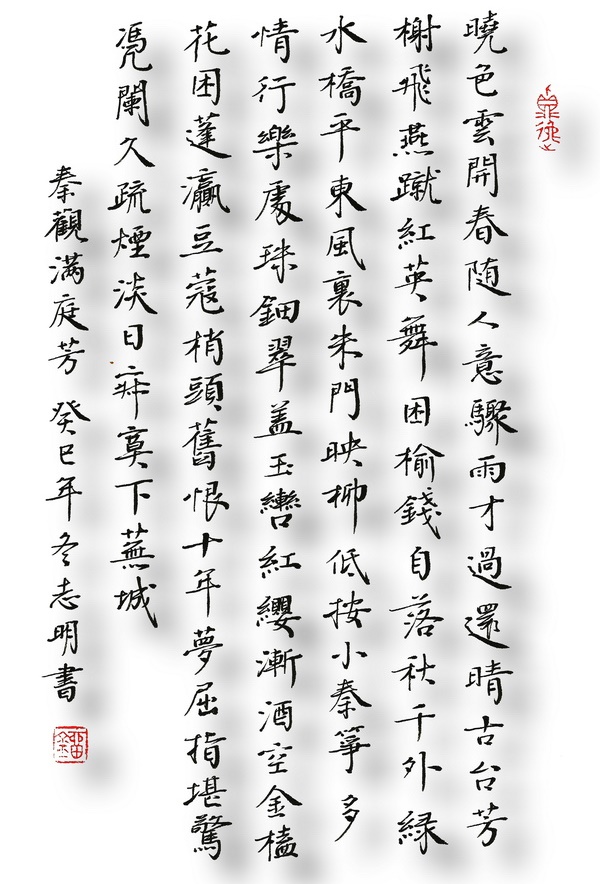 曉色雲開春随人意驟雨才過還晴古台芳
榭飛燕蹴紅英舞困榆錢自落秋千外緑
水橋平東風裏朱門映柳低按小秦箏多
情行樂處珠鈿翠盖玉轡紅纓漸酒空金榼
花困蓬瀛豆蔻梢頭舊恨十年夢屈指堪驚
凴闌久疏煙淡日寂寞下蕪城
秦觀满庭芳 癸巳年冬志明書